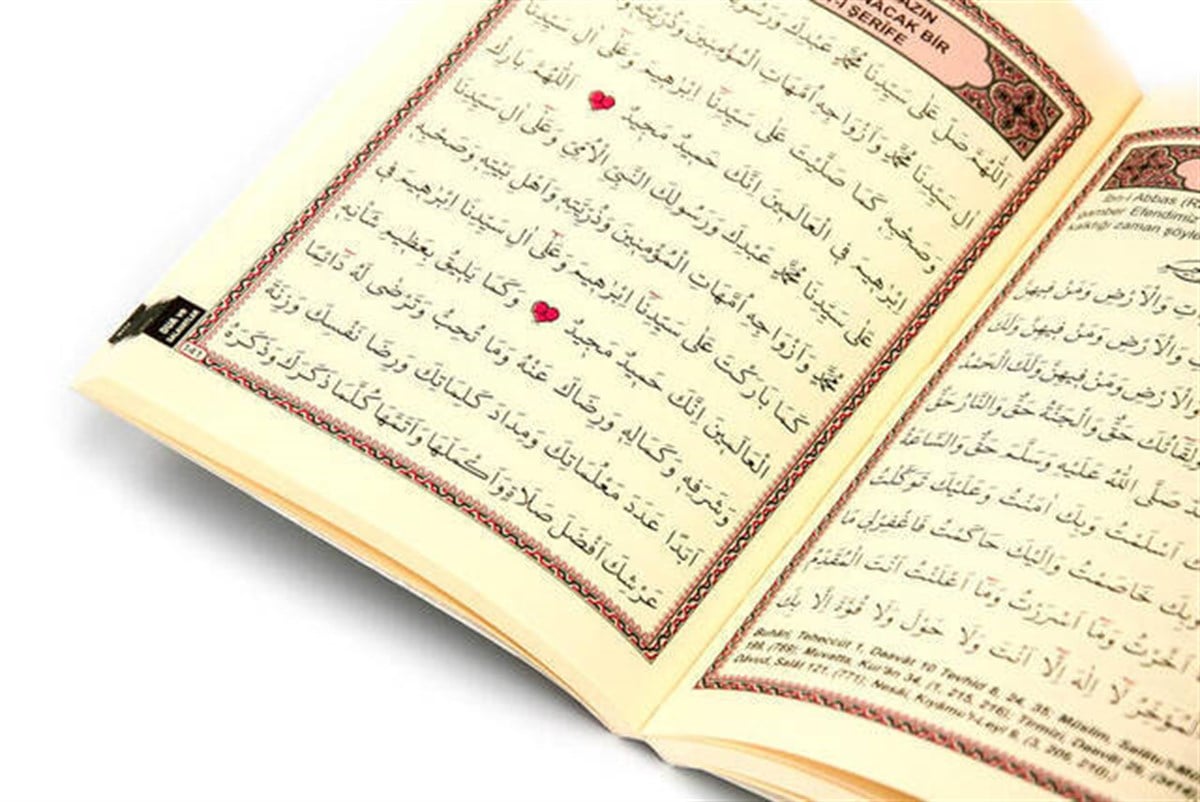 AZIN
NACAK BİR
-İ ŞERİFE
اَللّٰهُمَّ صَلِّ عَلٰى سَيِّدِنَا مُحَمَّدٍ عَبْدِكَ وَرَسُولِكَ
اٰلِ سَيِّدِنَا مُحَمَّدٍ وَاَزْوَاجِهِ اُمَّهَاتِ الْمُؤْمِنِينَ وَذُرِّيَّتِهِ وَ
وَصَحْبِهِ كَمَا صَلَّيْتَ عَلٰى سَيِّدِنَا اِبْرٰهِيمَ وَعَلٰى اٰلِ سَيِّدِنَا
اِبْرٰهِيمَ فِى الْعَالَمِينَ اِنَّكَ حَمِيدٌ مَجِيدٌ اَللّٰهُمَّ بَارِكْ
عَلٰى سَيِّدِنَا مُحَمَّدٍ عَبْدِكَ وَرَسُولِكَ النَّبِيِّ الْاُمِّيِّ وَعَلٰى اٰلِ سَيِّدِنَا
مُحَمَّدٍ وَاَزْوَاجِهِ اُمَّهَاتِ الْمُؤْمِنِينَ وَذُرِّيَّتِهِ وَاَهْلِ بَيْتِهِ وَصَحْبِهِ
كَمَا بَارَكْتَ عَلٰى سَيِّدِنَا اِبْرٰهِيمَ وَعَلٰى اٰلِ سَيِّدِنَا اِبْرٰهِيمَ فِى
الْعَالَمِينَ اِنَّكَ حَمِيدٌ مَجِيدٌ وَكَمَا يَلِيقُ بِعَظِيمِ شَأْنِهِ
وَشَرَفِهِ وَكَمَالِهِ وَرِضَاكَ عَنْهُ وَمَا تُحِبُّ وَتَرْضٰى لَهُ دَائِمًا
اَبَدًا عَدَدَ مَعْلُمَاتِكَ وَمِدَادَ كَلِمَاتِكَ وَرِضَا نَفْسِكَ وَزِنَةَ
عَرْشِكَ اَفْضَلَ صَلَاةٍ وَاَكْمَلَهَا وَاَتَمَّهَا كُلَّمَا ذَكَرَكَ وَذَكَرَهُ
DUA ve
141
İbn-i Abbas (R
amber Efendimiz
kalktığı zaman söyle
تِ وَالْاَرْضِ وَمَنْ فِيهِنَّ
وَالْاَرْضِ وَمَنْ فِيهِنَّ وَلَكَ
وَالْاَرْضِ وَمَنْ فِيهِنَّ وَلَكَ الْحَمْدُ
وَلِقَائُكَ حَقٌّ وَالْجَنَّةُ حَقٌّ وَالنَّارُ حَقٌّ
صَلَّى اللّٰهُ عَلَيْهِ وَسَلَّمَ حَقٌّ وَالسَّاعَةُ
اَسْلَمْتُ وَبِكَ اٰمَنْتُ وَعَلَيْكَ تَوَكَّلْتُ
وَبِكَ خَاصَمْتُ وَاِلَيْكَ حَاكَمْتُ فَاغْفِرْلِي مَا
اَخَّرْتُ وَمَا اَسْرَرْتُ وَمَا اَعْلَنْتُ اَنْتَ الْمُقَدِّمُ
الْمُؤَخِّرُ لَا اِلٰهَ اِلَّا اَنْتَ وَلَا حَوْلَ وَلَا قُوَّةَ اِلَّا بِكَ
Buhârî, Teheccüt 1, Daavât 10 Tevhid 8, 24, 35; Müslim, Salâtu'l-Mu
199, (769); Muvatta, Kur'ân 34, (1, 215, 216); Tirmizî, Daavât 29, (3414)
Dâvud, Salât 121, (771); Nesâî, Kıyâmu'l-Leyl 9, (3, 209, 210).